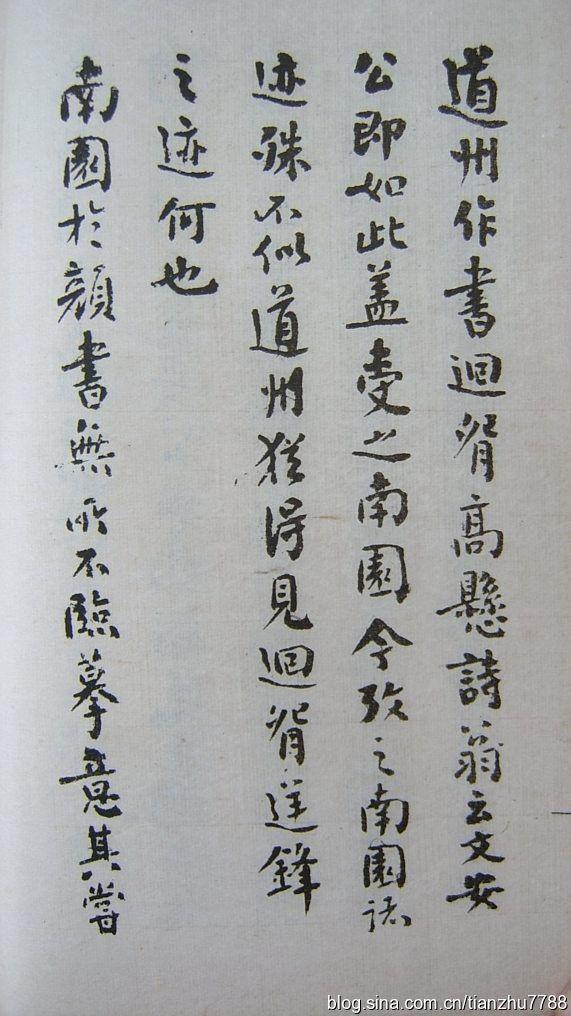 道州作書迴腕高懸詩翁云文安
公即如此蓋受之南園今攷之南園諸
迹殊不似道州猶得見迴腕逆鋒
之迹何也
南園於顏書無所不臨摹意其嘗
blog.sina.com.cn/tianzhu7788